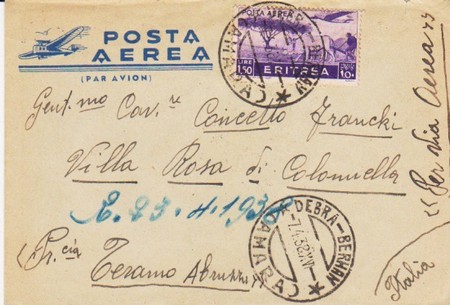 POSTA
AEREA
(PAR AVION)
POSTA AEREA
LIRE
1,50
ERITREA
AMARA
Gent.mo Cav.re Concetto Franchi
Villa Rosa di Colonnella
R. 23.4.1938
(Pr.cia
Teramo Abruzzi)
« Per via Aerea »
Italia
DEBRÀ-BERHAN
7.4.38 XVI
(AMARA)